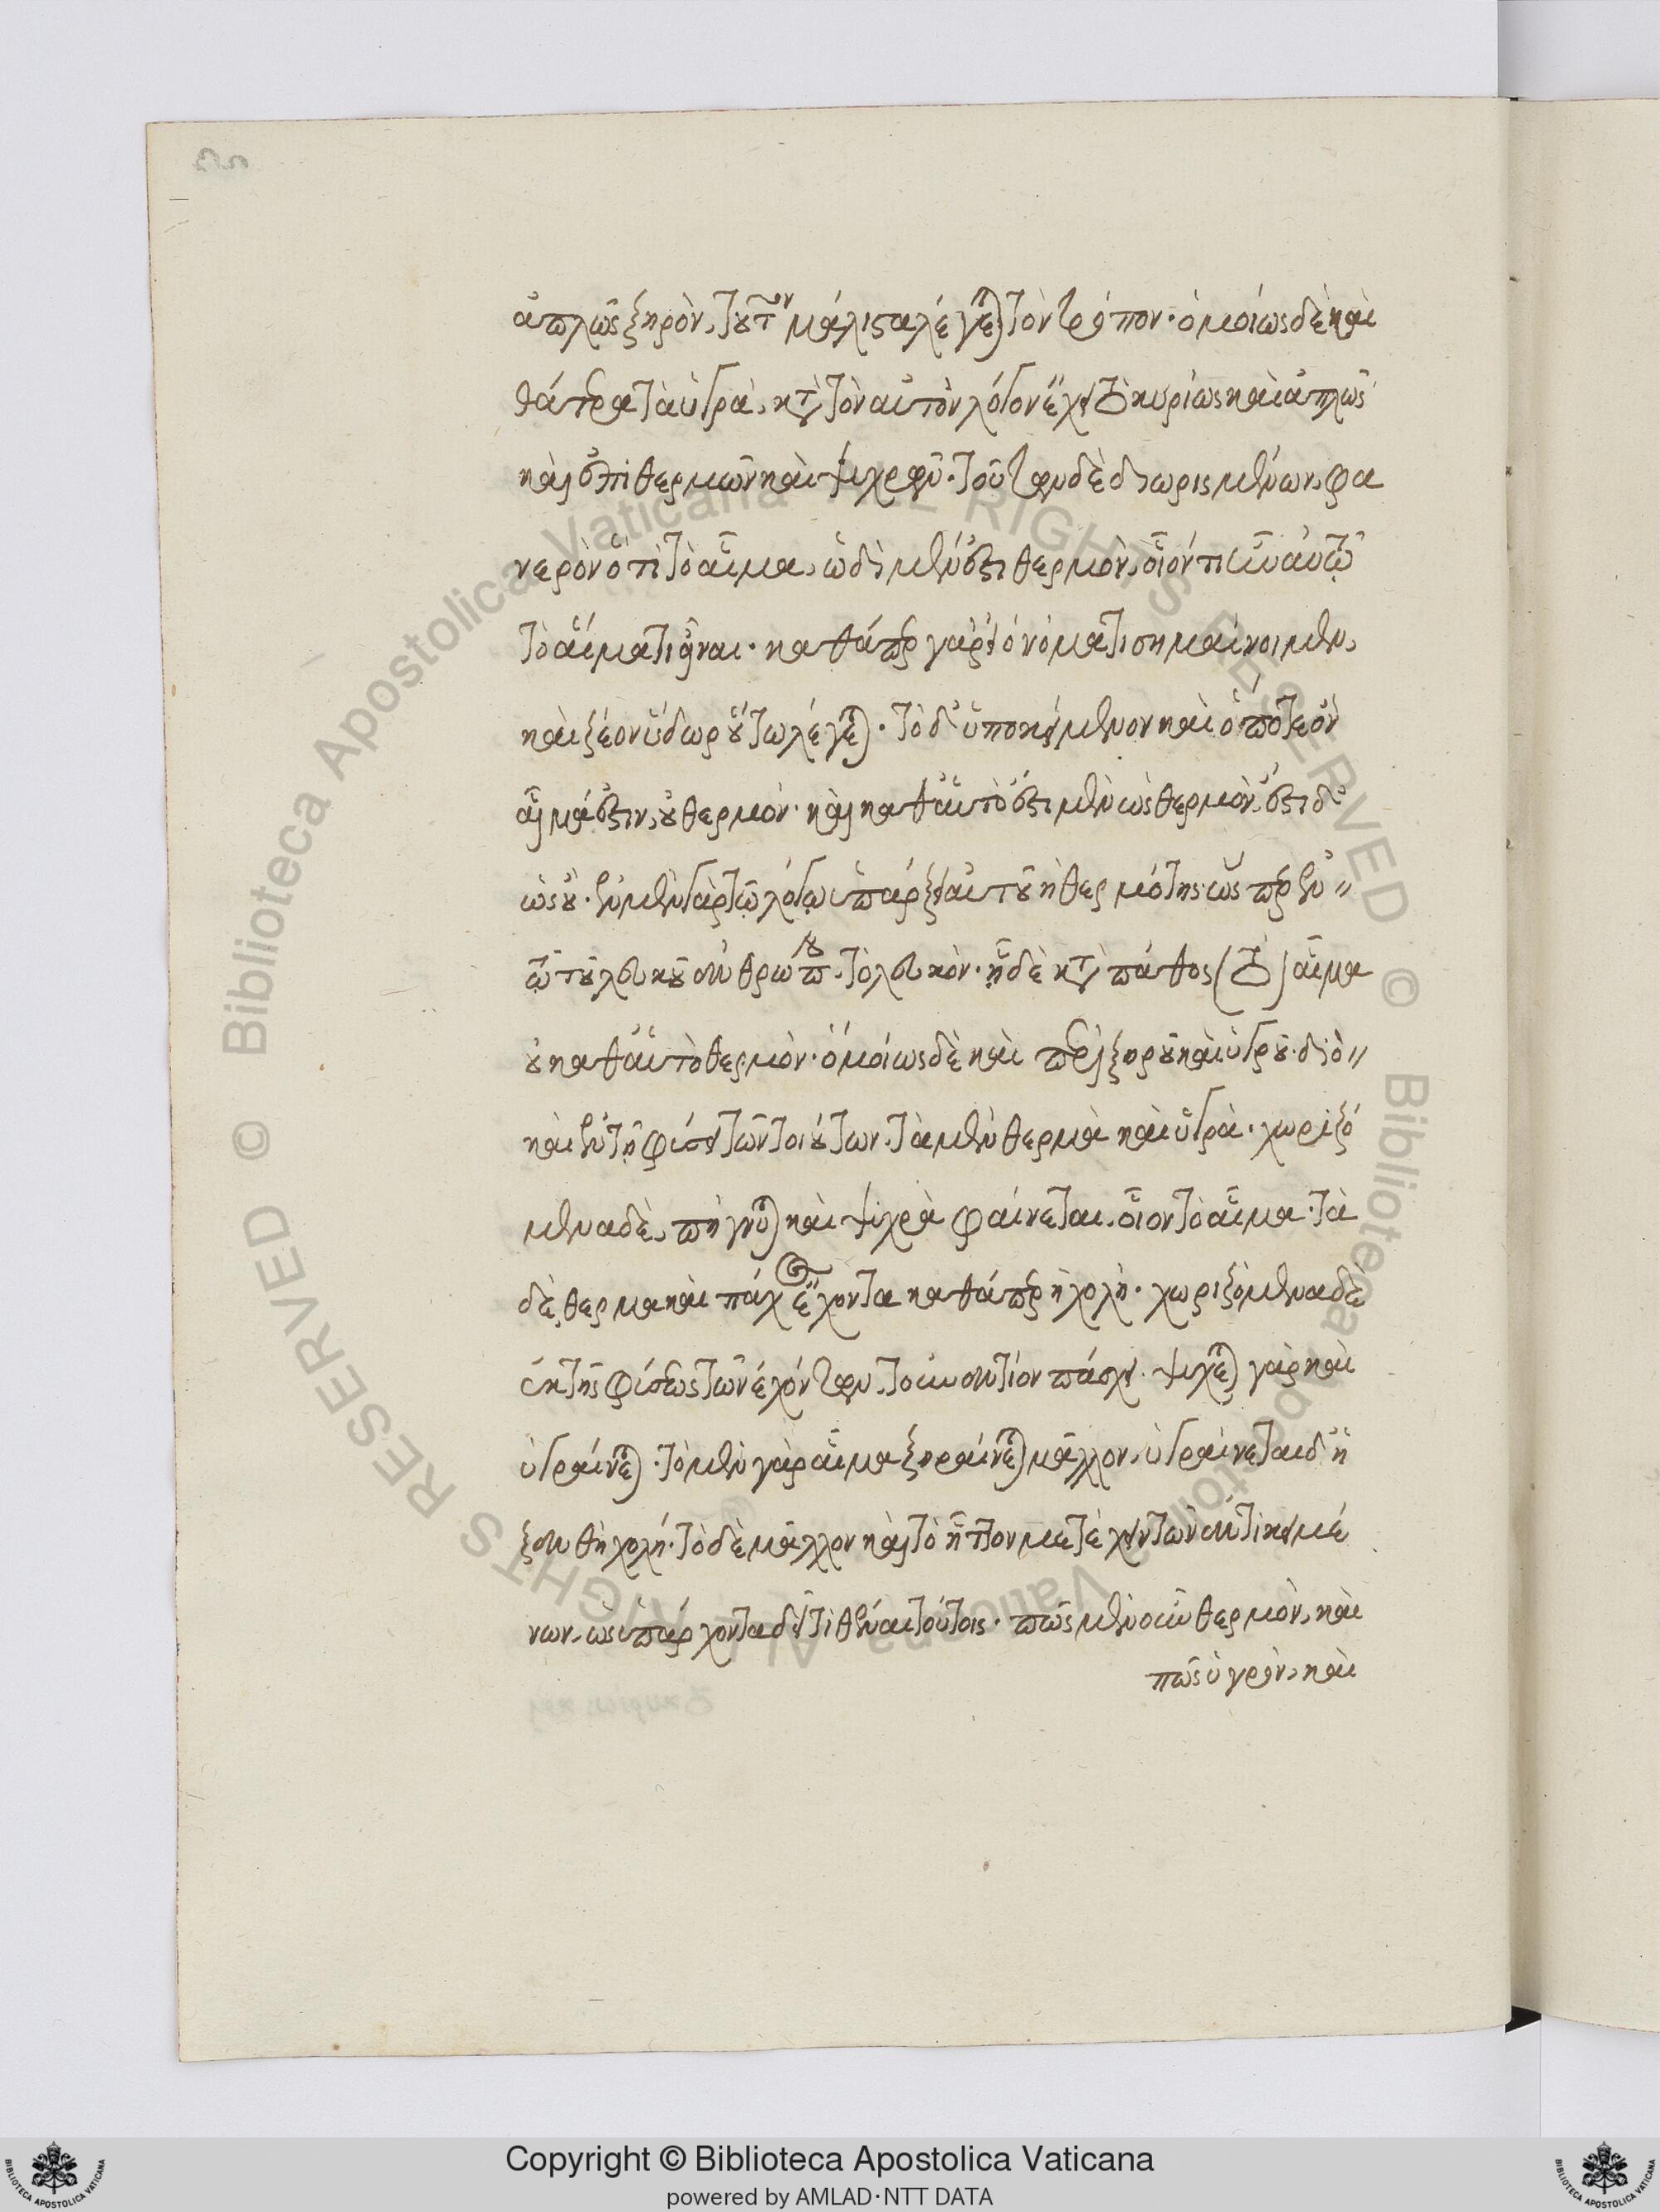 ἁπλῶς ξηρὸν, τοῦτον μάλιστα λέγεται τὸν τρόπον· ὁμοίως δὲ καὶ
θάτερα τὰ ὑγρὰ, κατὰ τὸν αὐτὸν λόγον ἔχει τὸ κυρίως καὶ ἁπλῶς
καὶ ἐπὶ θερμῶν καὶ ψυχρῶν. τούτων δὲ διωρισμένων, φα
νερὸν ὅτι τὸ αἷμα, ὡδὶ μέν ἐστι θερμὸν, οἷόν τι ἦν αὐτῷ
τὸ αἵματι εἶναι. καθάπερ γὰρ εἰ ὀνόματι σημαίνοιμεν,
καὶ ζέον ὕδωρ οὕτω λέγεται. τὸ δ' ὑποκείμενον καὶ ὅ ποτε ὂν
αἷμά ἐστιν, οὐ θερμόν. καὶ καθ' αὑτὸ ἔστι μὲν ὡς θερμὸν, ἔστι δ'
ὡς οὔ. ἐν μὲν γὰρ τῷ λόγῳ ὑπάρξει αὐτοῦ ἡ θερμότης ὥσπερ ἐν
τῷ τοῦ λευκοῦ ἀνθρώπου τὸ λευκόν. ᾗ δὲ κατὰ πάθος (τὸ) αἷμα
οὐ καθ' αὑτὸ θερμόν. ὁμοίως δὲ καὶ περὶ ξηροῦ καὶ ὑγροῦ. διὸ
καὶ ἐν τῇ φύσει τῶν τοιούτων. τὰ μὲν θερμὰ καὶ ὑγρὰ. χωριζό
μενα δὲ, πήγνυται καὶ ψυχρὰ φαίνεται, οἷον τὸ αἷμα. τὰ
δὲ, θερμὰ καὶ πάχος ἔχοντα καθάπερ ἡ χολὴ. χωριζόμενα δὲ
ἐκ τῆς φύσεως τῶν ἐχόντων, τοὐναντίον πάσχει. ψύχεται γὰρ καὶ
ὑγραίνεται. τὸ μὲν γὰρ αἷμα ξηραίνεται μᾶλλον, ὑγραίνεται δ' ἡ
ξανθὴ χολή. τὸ δὲ μᾶλλον καὶ τὸ ἧττον μετέχειν τῶν ἀντικειμέ
νων, ὡς ὑπάρχοντα δεῖ τιθέναι τούτοις. πῶς μὲν οὖν θερμὸν, καὶ
πῶς ὑγρὸν, καὶ
Copyright © Biblioteca Apostolica Vaticana
powered by AMLAD·NTT DATA